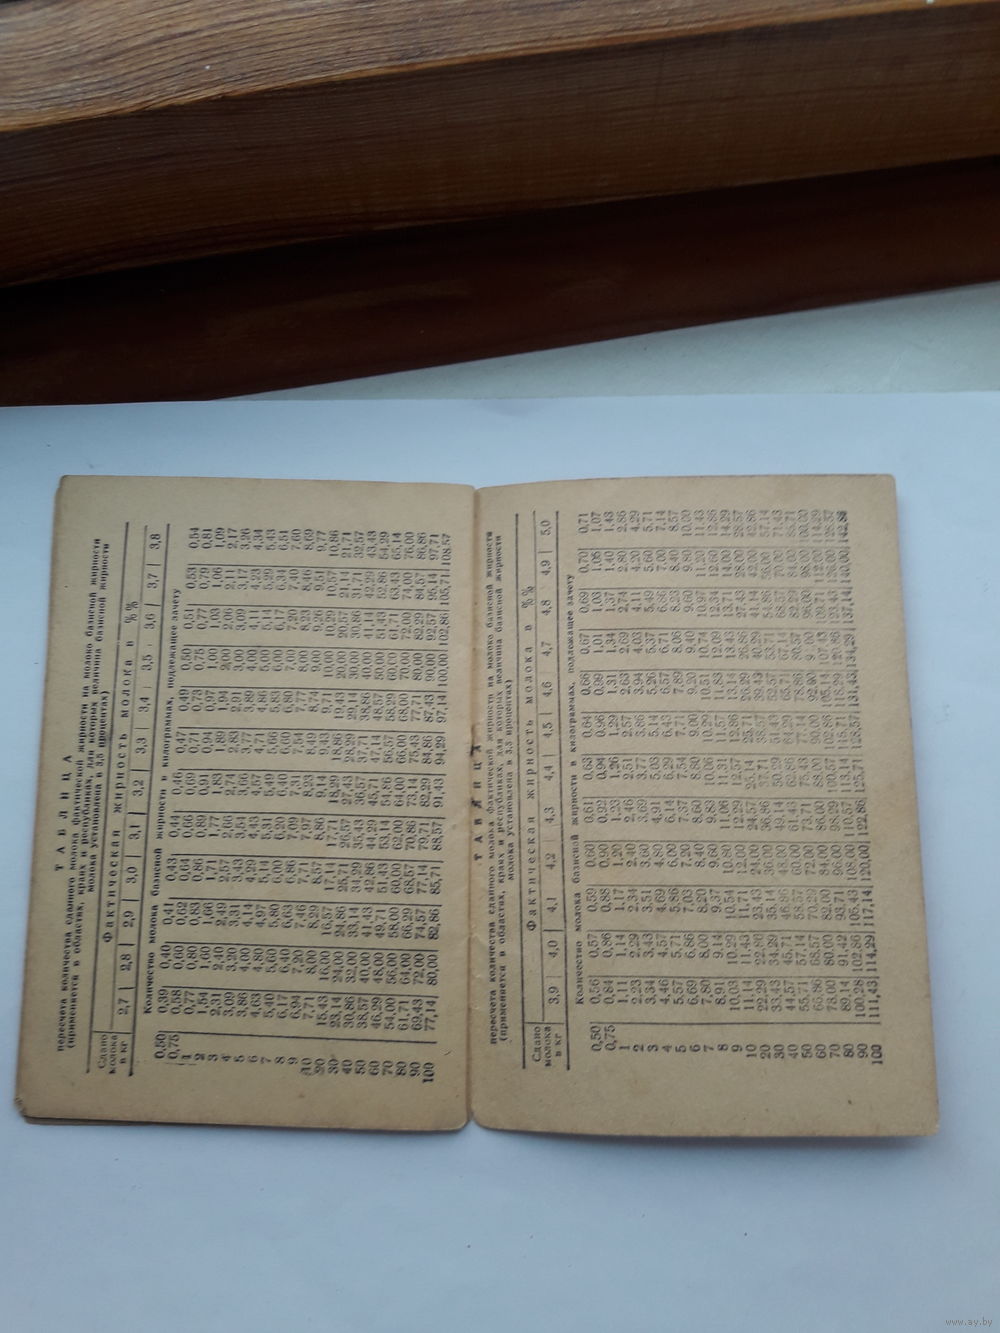 ТАБЛИЦА
пересчета количества сданного молока фактической жирности на молоко базисной жирности
(применяется в областях, краях и республиках, для которых величина базисной жирности
молока установлена в 3,5 процентах)
Сдано молока в кг | Фактическая жирность молока в %%
2,7 | 2,8 | 2,9 | 3,0 | 3,1 | 3,2 | 3,3 | 3,4 | 3,5 | 3,6 | 3,7 | 3,8
Количество молока базисной жирности в килограммах, подлежащее зачету
0,50 0,39 0,40 0,41 0,43 0,44 0,46 0,47 0,49 0,50 0,51 0,53 0,54
0,75 0,58 0,60 0,62 0,64 0,66 0,69 0,71 0,73 0,75 0,77 0,79 0,81
1 0,77 0,80 0,83 0,86 0,89 0,91 0,94 0,97 1,00 1,03 1,06 1,09
2 1,54 1,60 1,66 1,71 1,77 1,83 1,89 1,94 2,00 2,06 2,11 2,17
3 2,31 2,40 2,49 2,57 2,66 2,74 2,83 2,91 3,00 3,09 3,17 3,26
4 3,09 3,20 3,31 3,43 3,54 3,66 3,77 3,89 4,00 4,11 4,23 4,34
5 3,86 4,00 4,14 4,29 4,43 4,57 4,71 4,86 5,00 5,14 5,29 5,43
6 4,63 4,80 4,97 5,14 5,31 5,49 5,66 5,83 6,00 6,17 6,34 6,51
7 5,40 5,60 5,80 6,00 6,20 6,40 6,60 6,80 7,00 7,20 7,40 7,60
8 6,17 6,40 6,63 6,86 7,09 7,31 7,54 7,77 8,00 8,23 8,46 8,69
9 6,94 7,20 7,46 7,71 7,97 8,23 8,49 8,74 9,00 9,26 9,51 9,77
10 7,71 8,00 8,29 8,57 8,86 9,14 9,43 9,71 10,00 10,29 10,57 10,86
20 15,43 16,00 16,57 17,14 17,71 18,29 18,86 19,43 20,00 20,57 21,14 21,71
30 23,14 24,00 24,86 25,71 26,57 27,43 28,29 29,14 30,00 30,86 31,71 32,57
40 30,86 32,00 33,14 34,29 35,43 36,57 37,71 38,86 40,00 41,14 42,29 43,43
50 38,57 40,00 41,43 42,86 44,29 45,71 47,14 48,57 50,00 51,43 52,86 54,29
60 46,29 48,00 49,71 51,43 53,14 54,86 56,57 58,29 60,00 61,71 63,43 65,14
70 54,00 56,00 58,00 60,00 62,00 64,00 66,00 68,00 70,00 72,00 74,00 76,00
80 61,71 64,00 66,29 68,57 70,86 73,14 75,43 77,71 80,00 82,29 84,57 86,86
90 69,43 72,00 74,57 77,14 79,71 82,29 84,86 87,43 90,00 92,57 95,14 97,71
100 77,14 80,00 82,86 85,71 88,57 91,43 94,29 97,14 100,00 102,86 105,71 108,57
ТАБЛИЦА
пересчета количества сданного молока фактической жирности на молоко базисной жирности
(применяется в областях, краях и республиках, для которых величина базисной жирности
молока установлена в 3,5 процентах)
Сдано молока в кг | Фактическая жирность молока в %%
3,9 | 4,0 | 4,1 | 4,2 | 4,3 | 4,4 | 4,5 | 4,6 | 4,7 | 4,8 | 4,9 | 5,0
Количество молока базисной жирности в килограммах, подлежащее зачету
0,50 0,56 0,57 0,59 0,60 0,61 0,63 0,64 0,66 0,67 0,69 0,70 0,71
0,75 0,84 0,86 0,88 0,90 0,92 0,94 0,96 0,99 1,01 1,03 1,05 1,07
1 1,11 1,14 1,17 1,20 1,23 1,26 1,29 1,31 1,34 1,37 1,40 1,43
2 2,23 2,29 2,34 2,40 2,46 2,51 2,57 2,63 2,69 2,74 2,80 2,86
3 3,34 3,43 3,51 3,60 3,69 3,77 3,86 3,94 4,03 4,11 4,20 4,29
4 4,46 4,57 4,69 4,80 4,91 5,03 5,14 5,26 5,37 5,49 5,60 5,71
5 5,57 5,71 5,86 6,00 6,14 6,29 6,43 6,57 6,71 6,86 7,00 7,14
6 6,69 6,86 7,03 7,20 7,37 7,54 7,71 7,89 8,06 8,23 8,40 8,57
7 7,80 8,00 8,20 8,40 8,60 8,80 9,00 9,20 9,40 9,60 9,80 10,00
8 8,91 9,14 9,37 9,60 9,83 10,06 10,29 10,51 10,74 10,97 11,20 11,43
9 10,03 10,29 10,54 10,80 11,06 11,31 11,57 11,83 12,09 12,34 12,60 12,86
10 11,14 11,43 11,71 12,00 12,29 12,57 12,86 13,14 13,43 13,71 14,00 14,29
20 22,29 22,86 23,43 24,00 24,57 25,14 25,71 26,29 26,86 27,43 28,00 28,57
30 33,43 34,29 35,14 36,00 36,86 37,71 38,57 39,43 40,29 41,14 42,00 42,86
40 44,57 45,71 46,86 48,00 49,14 50,29 51,43 52,57 53,71 54,86 56,00 57,14
50 55,71 57,14 58,57 60,00 61,43 62,86 64,29 65,71 67,14 68,57 70,00 71,43
60 66,86 68,57 70,29 72,00 73,71 75,43 77,14 78,86 80,57 82,29 84,00 85,71
70 78,00 80,00 82,00 84,00 86,00 88,00 90,00 92,00 96,00 98,00 100,00
80 89,14 91,42 93,71 96,00 98,29 100,57 102,86 105,14 107,43 109,71 112,00 114,29
90 100,28 102,86 105,43 108,00 110,57 113,14 115,71 118,29 120,86 123,43 126,00 128,57
100 111,43 114,29 117,14 120,00 122,86 125,71 128,57 131,43 134,29 137,14 140,00 142,86
www.ay.by